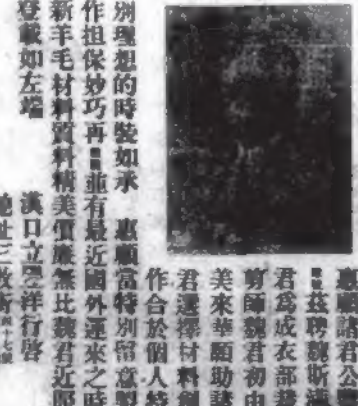 惠顧諸君公
茲聘魏斯
君爲成衣部裁
剪師魏君初由
美來華願助諸
君選擇材料創
作合於個人特
別理想的時裝如承 惠顧當特別留意製
作担保妙巧再 並有最近國外運來之時
新羊毛材料質料精美價廉無比魏君近
登載如左端 漢口立興洋行啓
地址三敎街